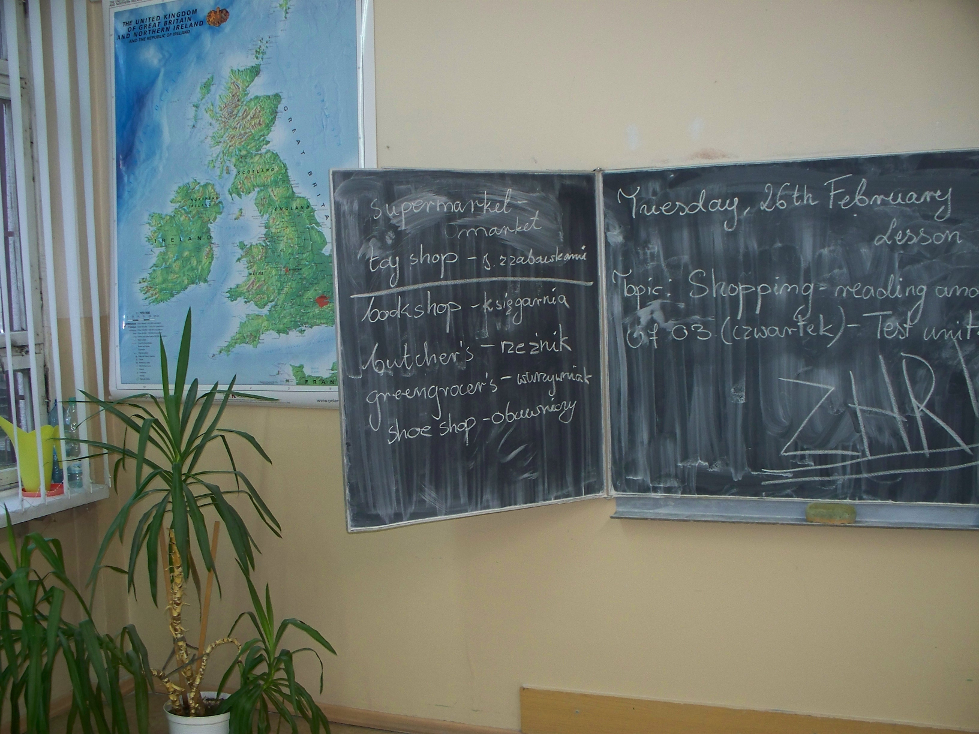 THE UNITED KINGDOM
OF GREAT BRITAIN
AND NORTHERN IRELAND
AND THE REPUBLIC OF IRELAND
GREAT BRITAIN
SCOTLAND
IRELAND
supermarket
market
toy shop - s. z zabawkami
bookshop - księgarnia
butcher's - rzeźnik
greengrocer's - warzywniak
shoe shop - obuwniczy
Tuesday, 26th February
Lesson
Topic: Shopping - reading and
07 03 (czwartek) - Test unit
ZAR